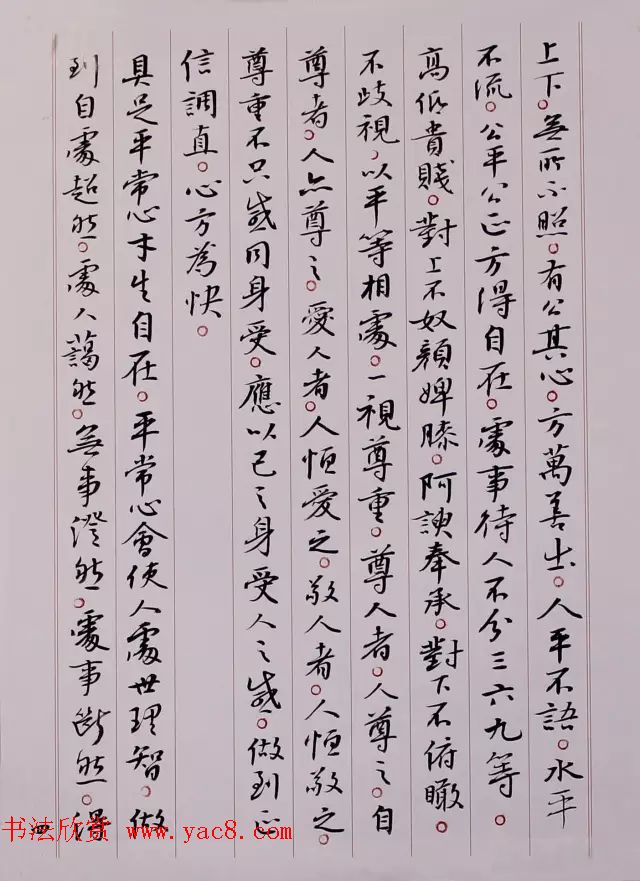 上下。無所不照。有公其心。方萬善出。人平不語。水平
不流。公平公正方得自在。處事待人不分三六九等。
高低貴賤。對上不奴顏婢膝。阿諛奉承。對下不俯瞰。
不歧視。以平等相處。一視尊重。尊人者。人尊之。自
尊者。人亦尊之。愛人者。人恒愛之。敬人者。人恒敬之。
尊重不只感同身受。應以己之身受人之感。做到正
信調直。心方為快。
具足平常心才生自在。平常心會使人處世理智。做
到自處超然。處人藹然。無事澄然。處事斷然。得
四
书法欣赏 www.yac8.com